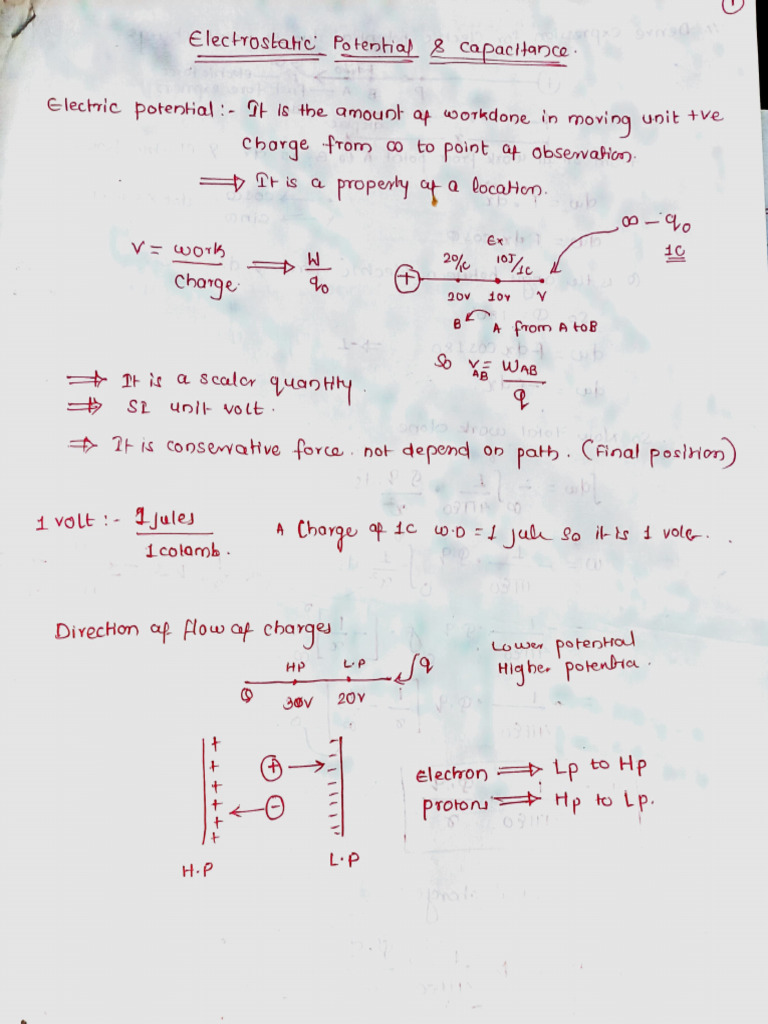 1
Electrostatic Potential & Capacitance.
Electric potential :- It is the amount of workdone in moving unit +ve
charge from ∞ to point of observation.
⇒ It is a property of a location.
V = work / charge ⇒ W / q₀
∞ – q₀
1C
Ex
20/C 10J/1C
+
20V 10V V
B A from A to B
So V_AB = W_AB / q
⇒ It is a scalar quantity.
⇒ SI unit volt.
⇒ It is conservative force. not depend on path. (final position)
1 volt :- 1 jules / 1 colamb.
A Charge of 1C W.D = 1 jule so it is 1 volt.
Direction of flow of charges
Lower potential
Higher potentia.
HP L.P q
Q 30V 20V
+ + + + + +
+ →
← −
H.P L.P
Electron ⇒ Lp to Hp
protons ⇒ Hp to Lp.